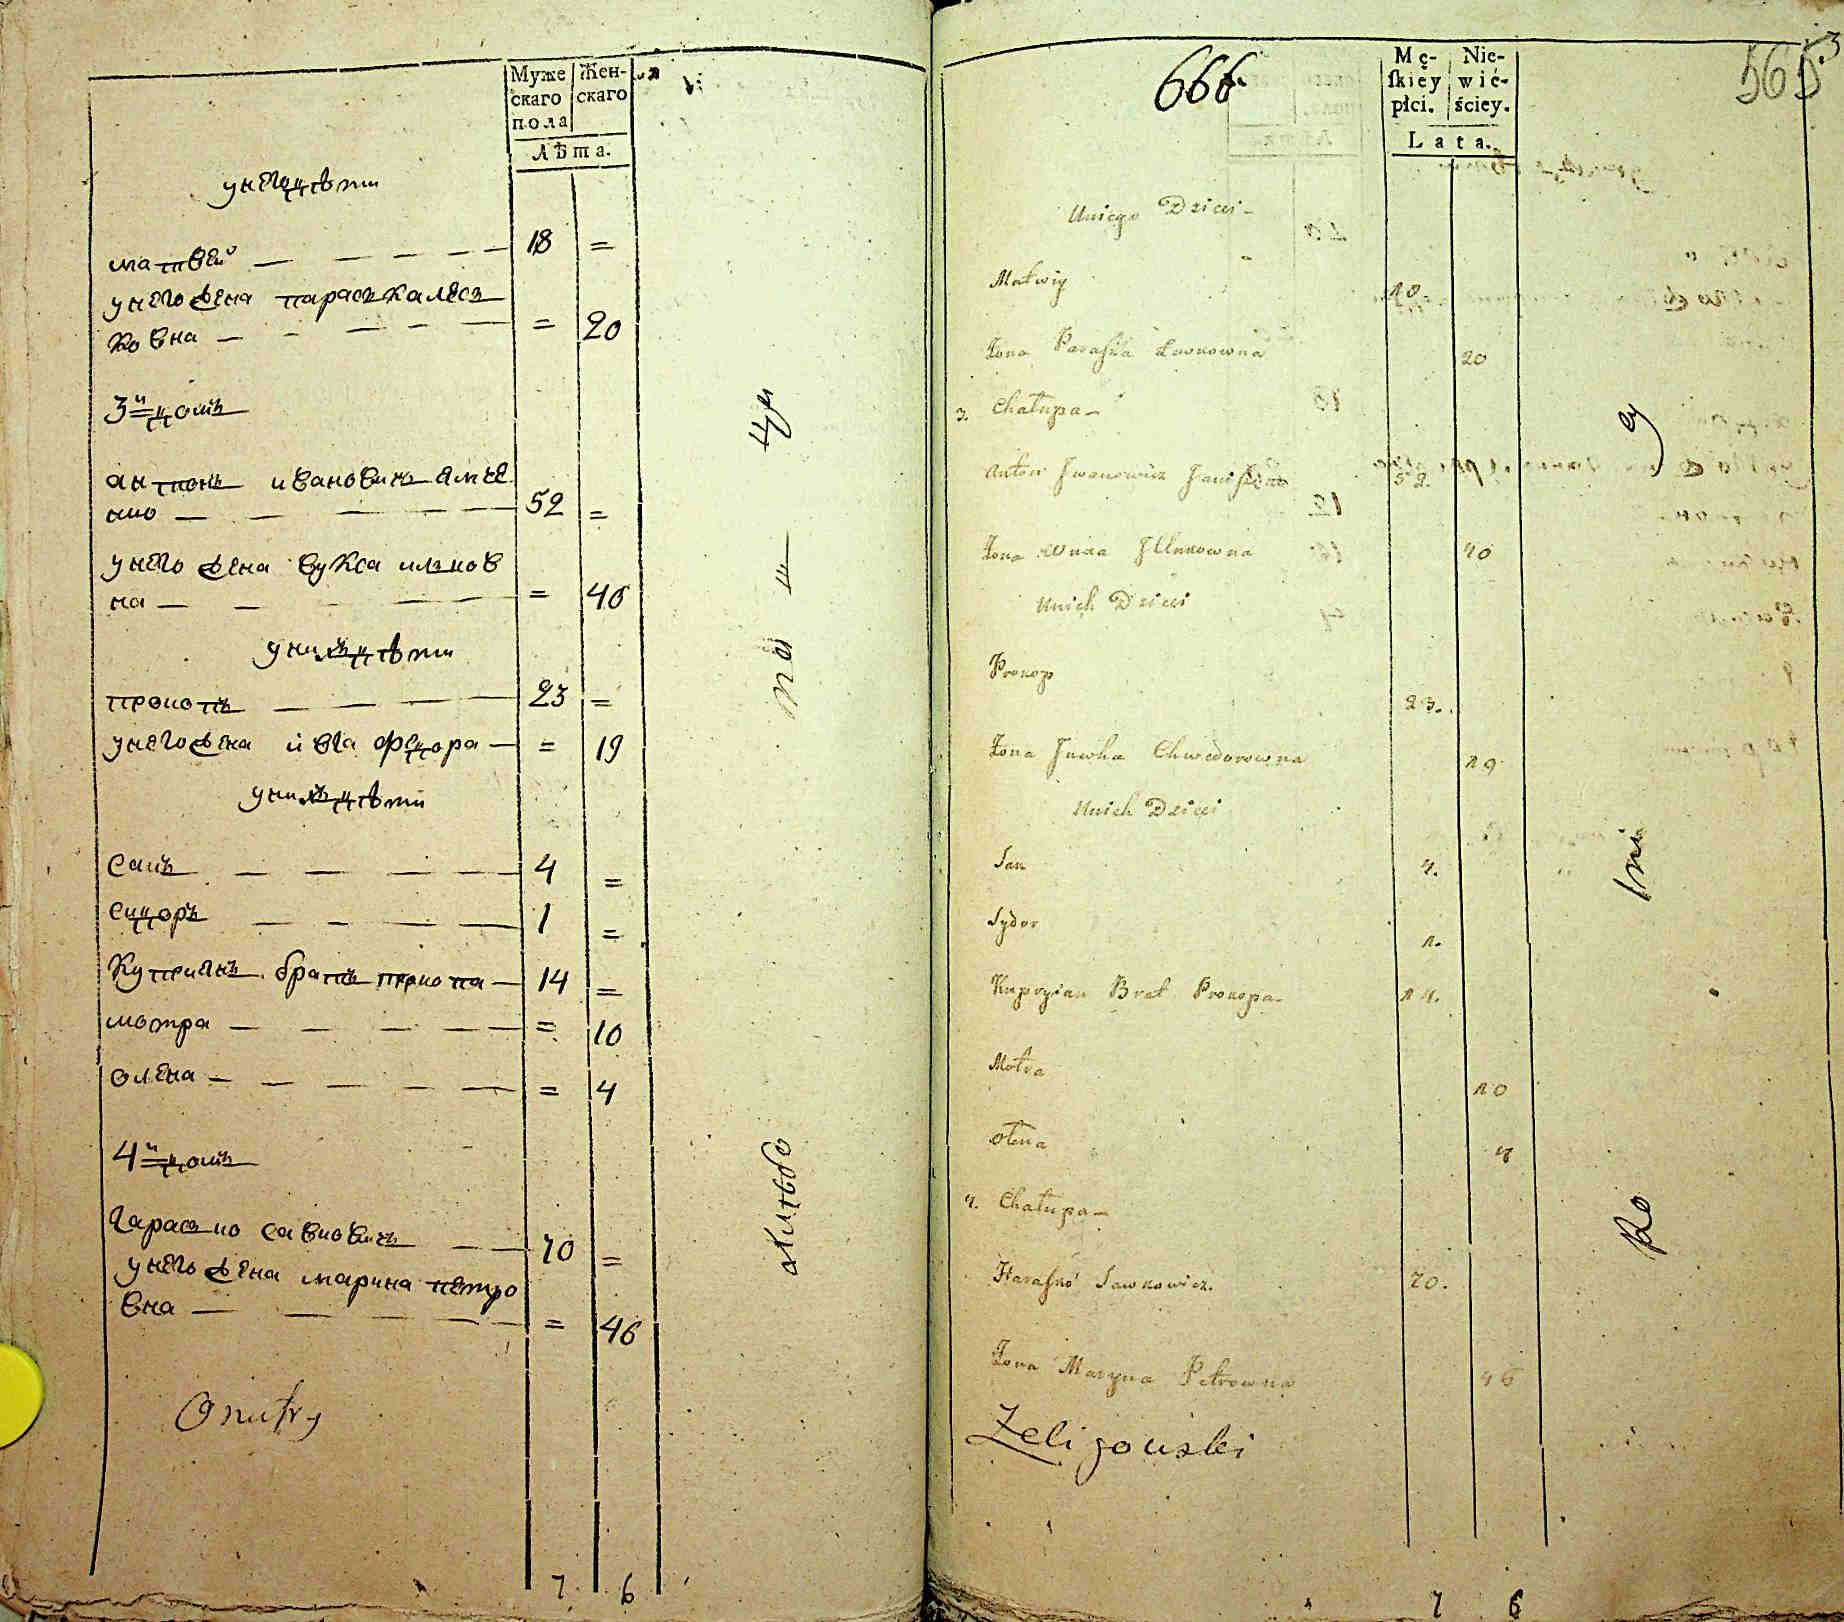 Муже
скаго
пола
Жен-
скаго
Лѣта.
унего дѣти
матвей 18 =
унего жена параска лес
ковна = 20
3й домъ
антонъ ивановичъ
52 =
унего жена вукса
на = 40
унихъ дѣти
прокопъ 23 =
унего жена ивга федора = 19
унихъ дѣти
сакъ 4 =
сидоръ 1 =
куприянъ братъ прокопа 14 =
мотра = 10
олена = 4
4й домъ
гараско савковичъ 70 =
унего жена марина петро
вна = 46
Onufry
7 6
666.
Mę-
skiey
płci.
Nie-
wié-
ściey.
Lata.
565
Uniego Dzieci
Matwiy 18
Żona Paraska Leskowna 20
3. Chałupa
Anton Iwanowicz 52
Żona 40
Unich Dzieci
Prokop 23.
Żona Juwha Chwedorowna 19
Unich Dzieci
Sak 4.
Sydor 1.
Kupryian Brat Prokopa 14.
Motra 10
Ołena 4
4. Chałupa
Harasko Sawkowicz. 70.
Żona Maryna Petrowna 46
Zeligowski
7 6